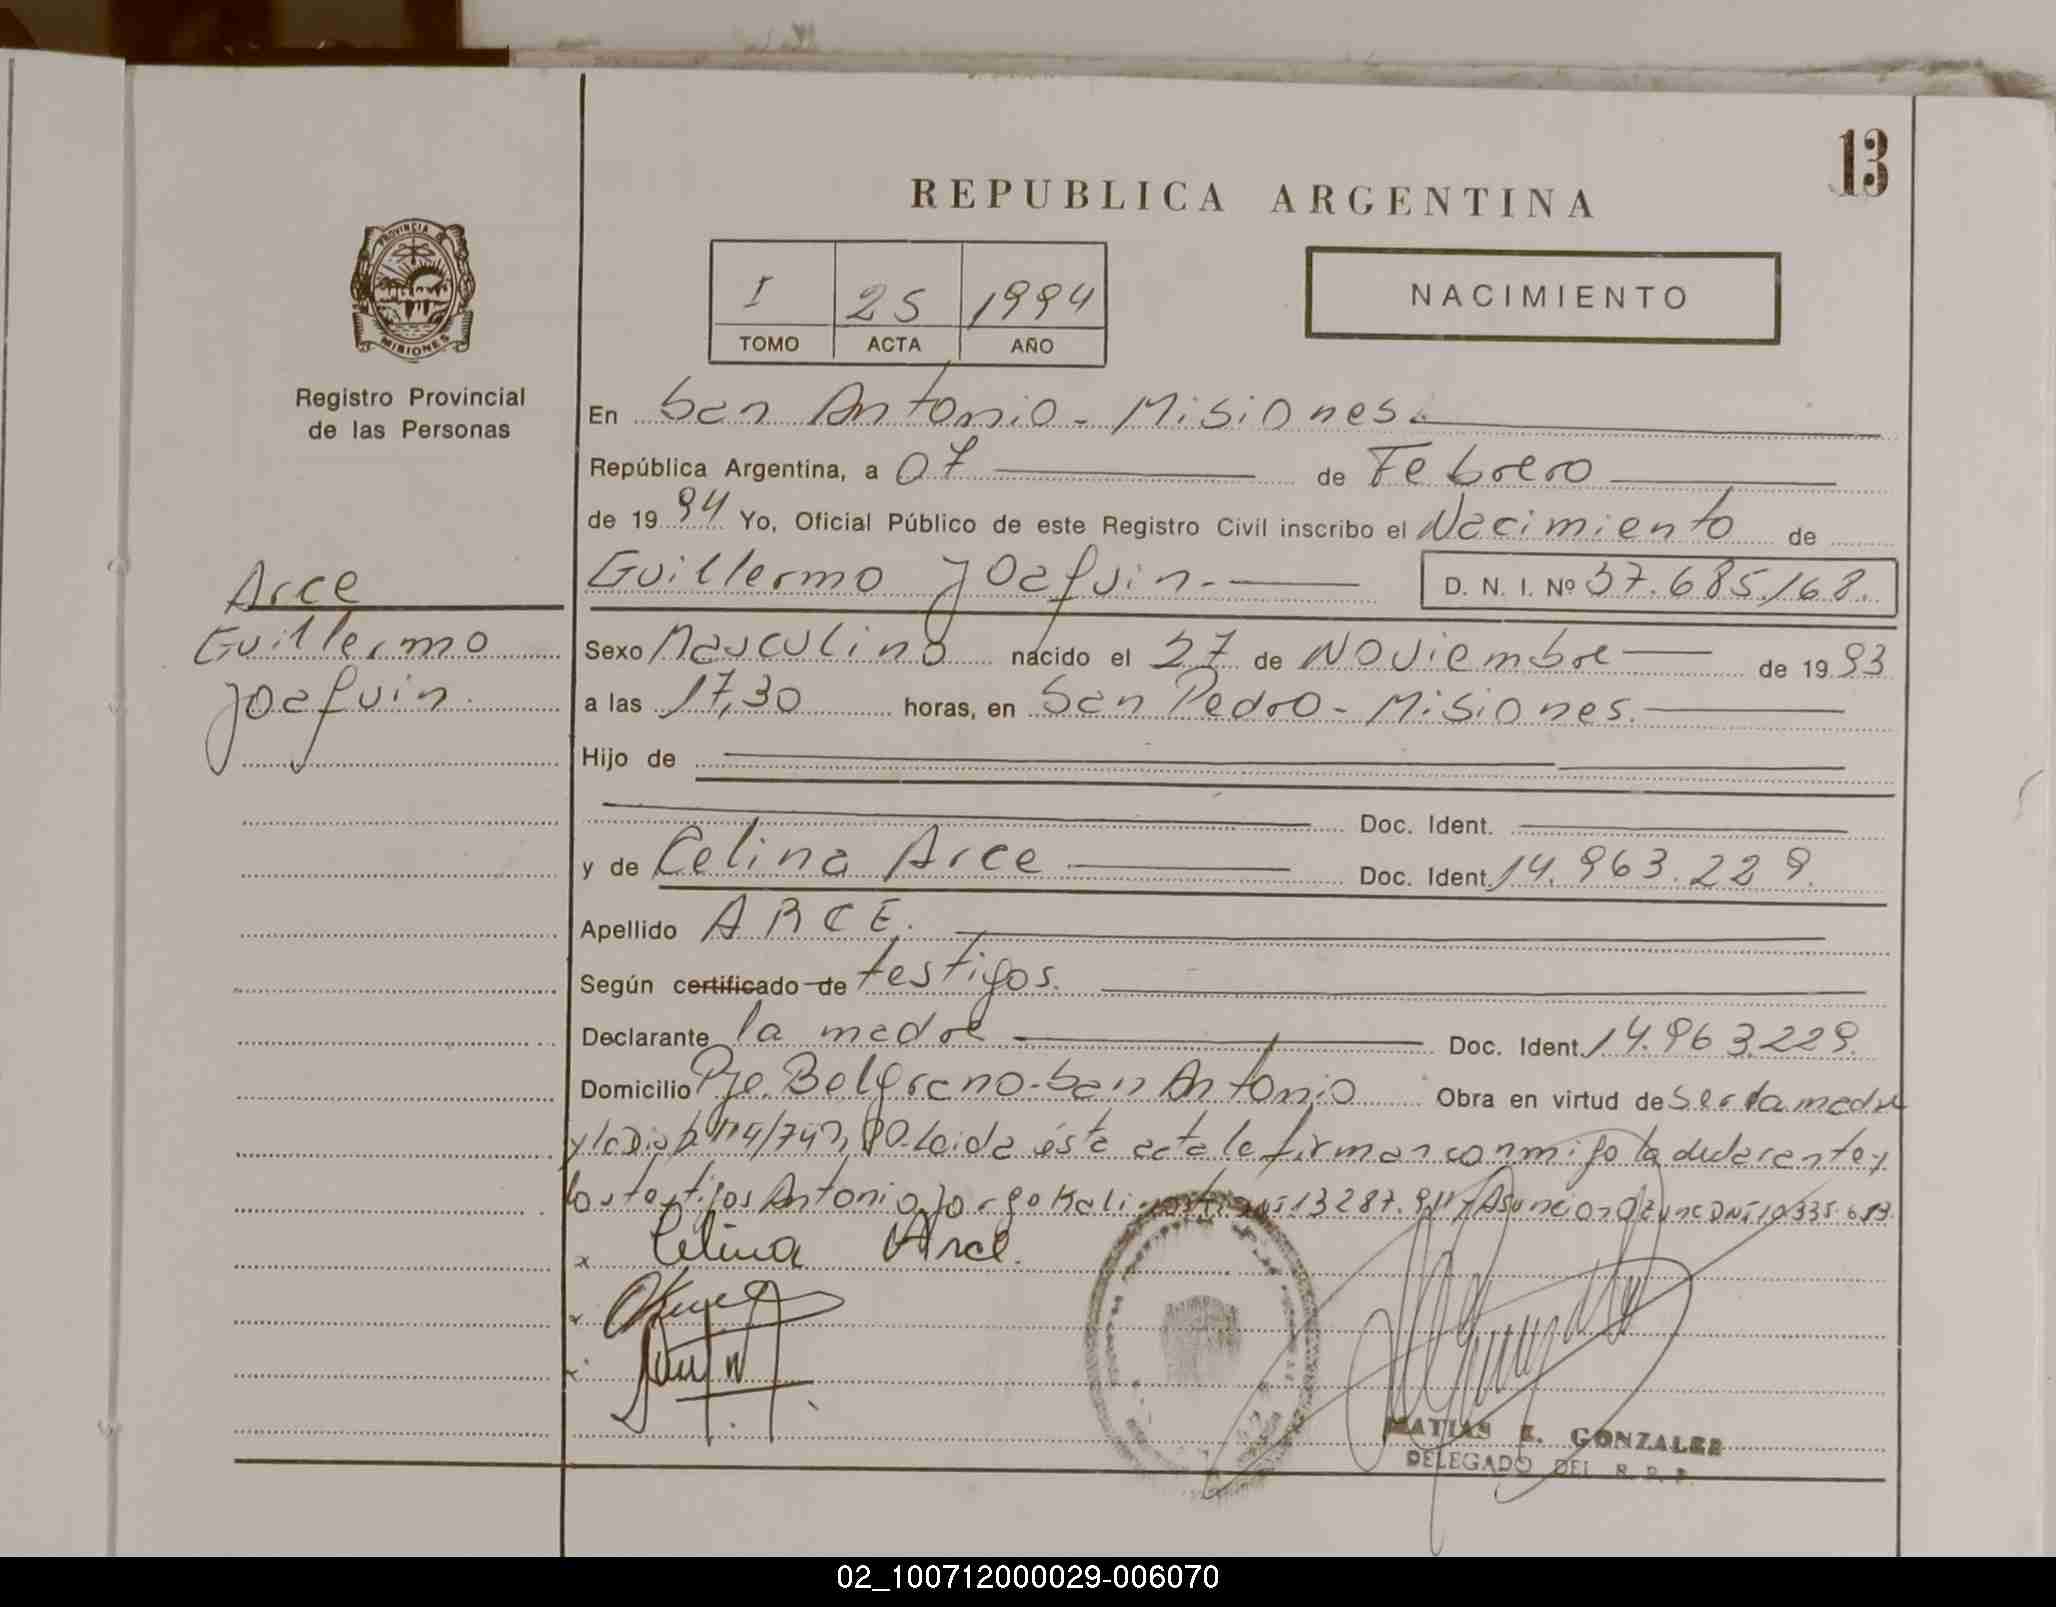 13
REPUBLICA ARGENTINA
PROVINCIA DE
MISIONES
I 25 1994
TOMO ACTA AÑO
NACIMIENTO
Registro Provincial
de las Personas
En San Antonio - Misiones.
República Argentina, a 07 de Febrero
de 1994 Yo, Oficial Público de este Registro Civil inscribo el Nacimiento de
Guillermo Joaquin.- D. N. I. Nº 37.685.168.
Arce
Guillermo
Joaquin.
Sexo Masculino nacido el 27 de Noviembre de 1993
a las 17,30 horas, en San Pedro - Misiones.
Hijo de
Doc. Ident.
y de Celina Arce Doc. Ident. 14.963.229.
Apellido ARCE.
Según certificado de testigos.
Declarante la madre Doc. Ident. 14.963.229.
Domicilio Pje. Belgrano - San Antonio Obra en virtud de ser la madre
y la Leida ésta acta la firman conmigo la declarante y
los testigos Antonio Jorge 13287. Asuncion
x Celina Arce.
MATIAS E. GONZALEZ
DELEGADO DEL R. P. P.
02_100712000029-006070